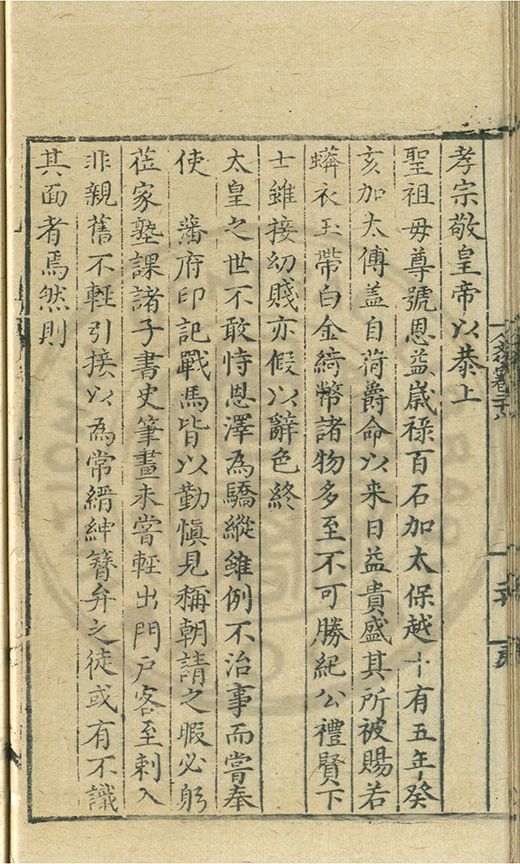 孝宗敬皇帝以恭上
聖祖毋尊號恩益歲祿百石加太保越十有五年癸
亥加太傅蓋自荷爵命以来日益貴盛其所被賜若
蟒衣玉帶白金綺幣諸物多至不可勝紀公禮賢下
士雖接幼賤亦假以辭色終
太皇之世不敢恃恩澤為驕縱雖例不治事而嘗奉
使 藩府印記戰馬皆以勤慎見稱朝請之暇必躬
莅家塾課諸子書史筆畫未嘗輕出門戶客至刺入
非親舊不輕引接以為常縉紳簪弁之徒或有不識
其面者焉然則